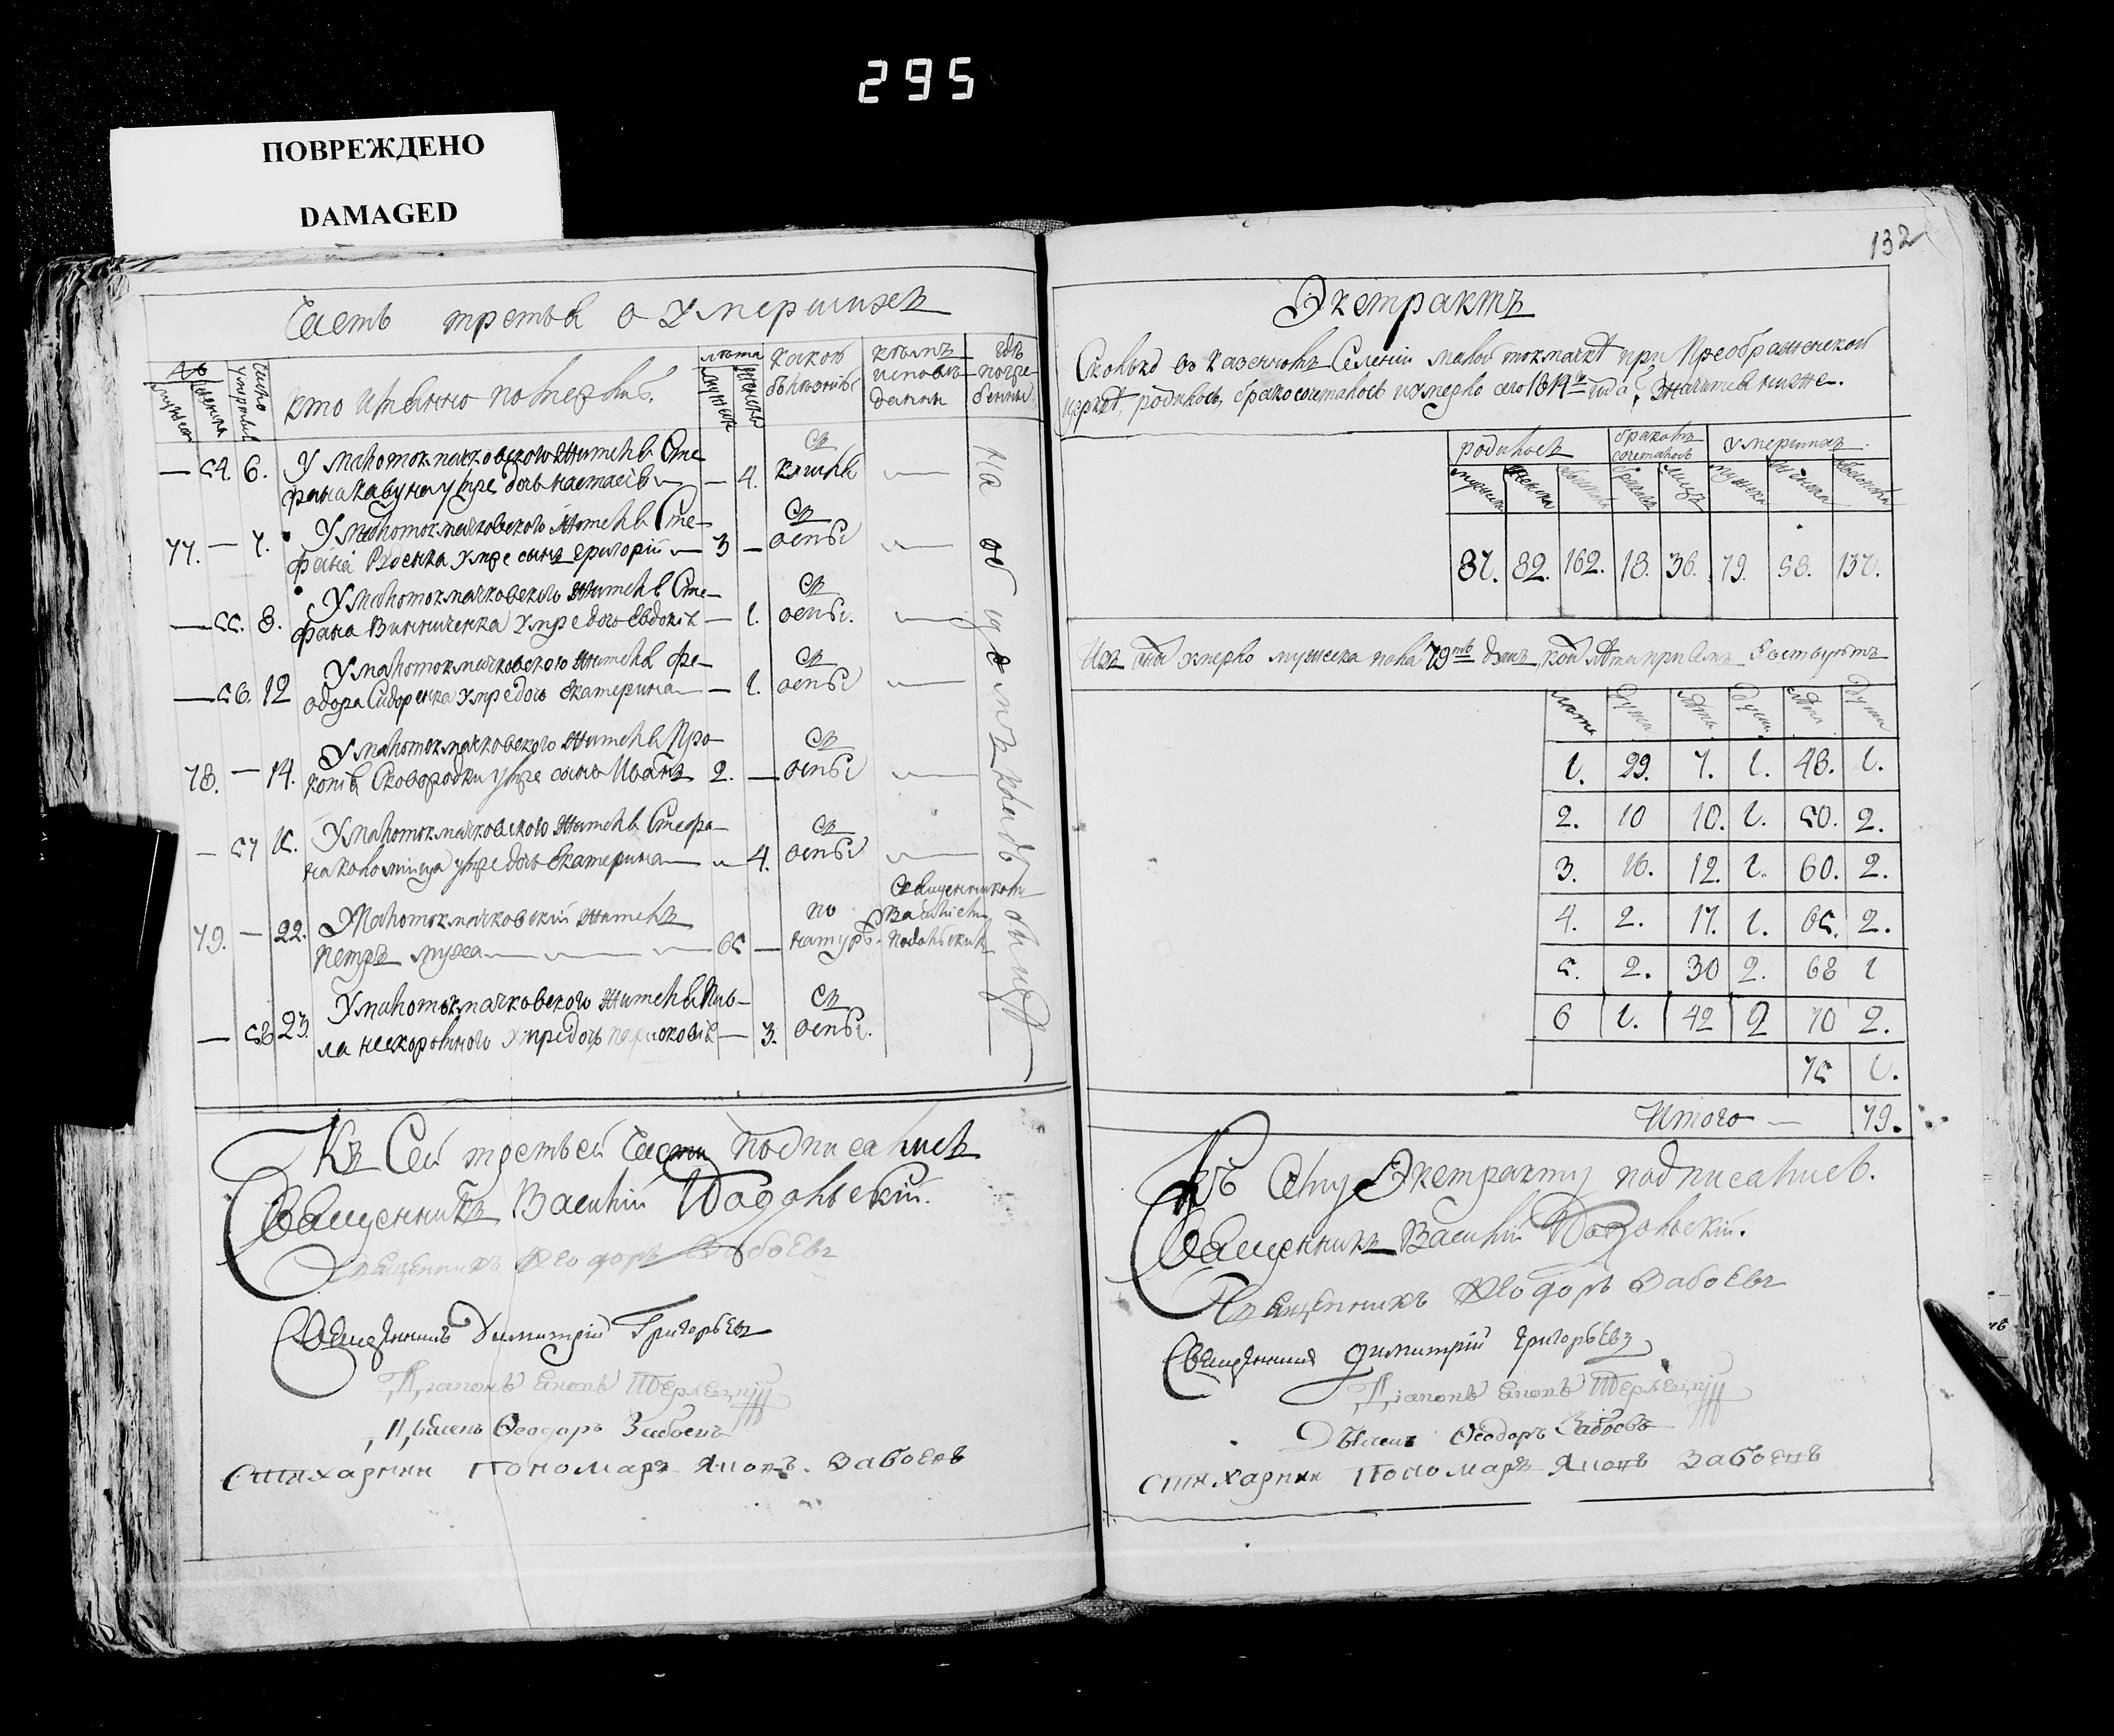 295
ПОВРЕЖДЕНО
DAMAGED
Часть третья о умершихъ
№
мужеска
женска
число умертвія
кто имянно померлъ.
лѣта
мужеск
женска
какою болѣзнію
кѣмъ исповѣданы
гдѣ погребенны
— 54. 6. У малотокмачковского жителя Сте
фана Кавуна умре дочь настасія — — 4. съ кашля —
77. — 7. У малотокмачковского жителя Сте
фана Руденка умре сынъ григорій — 3 — съ оспы —
— 55. 8. У малотокмачковского жителя Сте
фана Винниченка умре дочь Евдокія — 1. съ оспы. —
— 56. 12 У малотокмачковского жителя Фе
одора Сидоренка умре дочь екатерина — 1. съ оспы —
78. — 14. У малотокмачковского жителя Про
копія Сковородки умре сынъ Иванъ 2. — съ оспы —
— 57 15. У малотокмачковского жителя Стефа
на коломійца умре дочь екатерина — 4. съ оспы —
79. — 22. Малотокмачковскій житель
петръ муха — 65 — по натурѣ. Священникомъ Василіемъ Подольскимъ
— 58 23. У малотокмачковского жителя
ла нескоромного умре дочь парасковія — 3. съ оспы.
На общемъ кладбищѣ
Къ Сей третьей Части подписались
Священникъ Василій Подольскій.
Священникъ Ѳеодоръ Забоевъ
Священникъ Димитрій Григорьевъ
Діаконъ
Дьячекъ Ѳеодоръ Забоевъ
Стихарнии Пономаръ Яковъ Забоевъ
132
Экстрактъ
Сколько въ казенномъ Селеніи малой токмачкѣ при Преображенской
церквѣ, родилось, бракосочеталось и умерло сего 1814го года, Значится ниже.
родилось
браковъ сочеталось
умершихъ
мужеска женска обоего браковъ лицъ мужеска женска обоегополa
81. 82. 162. 18. 36. 79. 58. 137.
Изъ умерло мужеска пола 79ть душъ, кои лѣта при семъ явствуютъ
лѣта души лѣты души лѣта души
1. 29. 7. 1. 48. 1.
2. 10 10. 1. 50. 2.
3. 16. 12. 1. 60. 2.
4. 2. 17. 1. 65. 2.
5. 2. 30 2. 68 1
6 1. 42 2 70 2.
75 1.
Итого — 79.
Къ Сему Экстракту подписались.
Священникъ Василій Подольскій.
Священникъ Ѳеодоръ Забоевъ
Священникъ Димитрій Григорьевъ
Діаконъ
Дьячекъ Ѳеодоръ Забоевъ
Стихарнии Пономаръ Яковъ Забоевъ